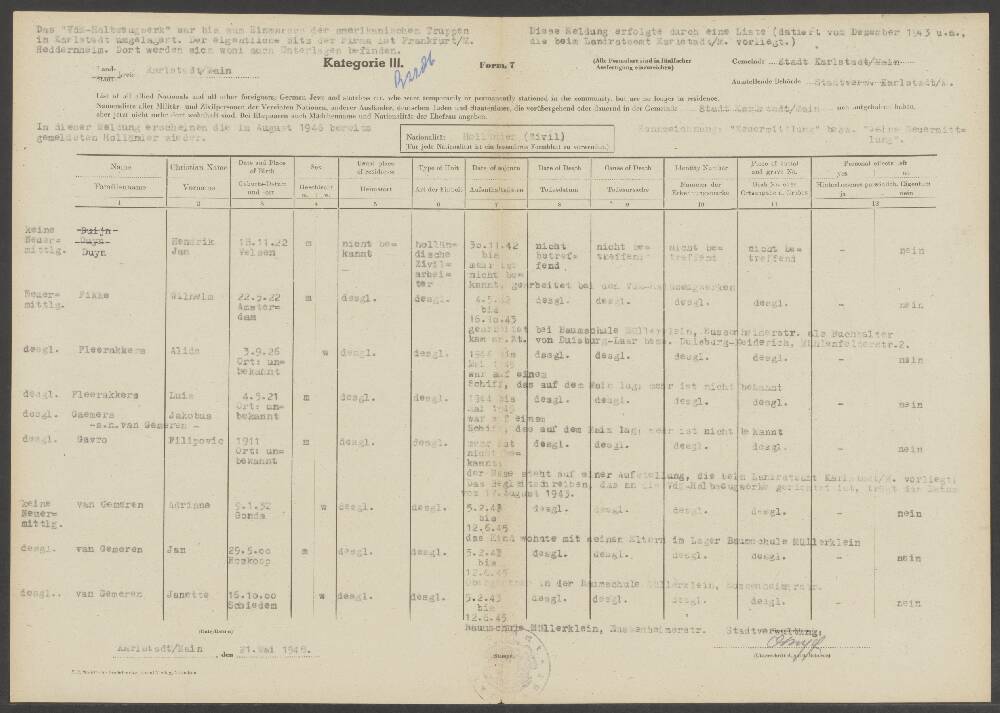 Das "VDM-Halbzeugwerk" war bis zum Einmarsch der amerikanischen Truppen
in Karlstadt umgelagert. Der eigentliche Sitz der Firma ist Frankfurt/M.
Heddernheim. Dort werden sich wohl auch Unterlagen befinden.
Diese Meldung erfolgte durch eine Liste (datiert vom Dezember 1943 u.a.,
die beim Landratsamt Karlstadt/M. vorliegt.)
Land-
Stadt-kreis Karlstadt/Main
Kategorie III.
Form. 7
(Alle Formulare sind in fünffacher
Ausfertigung einzureichen)
Gemeinde Stadt Karlstadt/Main
Ausstellende Behörde Stadtverw. Karlstadt/M.
List of all Allied Nationals and all other foreigners, German Jews and stateless etc. who were temporarily or permanently stationed in the community, but are no longer in residence.
Namensliste aller Militär- und Zivilpersonen der Vereinten Nationen, anderer Ausländer, deutschen Juden und Staatenloser, die vorübergehend oder dauernd in der Gemeinde Stadt Karlstadt/Main sich aufgehalten haben,
aber jetzt nicht mehr dort wohnhaft sind. Bei Ehepaaren auch Mädchennamen und Nationalität der Ehefrau angeben.
In dieser Meldung erscheinen die im August 1946 bereits
gemeldeten Holländer wieder.
Nationalität: Holländer (Zivil)
(Für jede Nationalität ist ein besonderes Formblatt zu verwenden.)
Kennzeichnung: "Neuermittlung" bezw. "keine Neuermitt=
lung".
Name Christian Name Date and Place of Birth Sex Usual place of residence Type of Unit Date of sojourn Date of Death Cause of Death Identity Number Place of burial and grave No. Personal effects left yes no
Familienname Vorname Geburts-Datum und -ort Geschlecht m. w. Heimatort Art der Einheit Aufenthaltszeiten Todesdatum Todesursache Nummer der Erkennungsmarke Grab No. oder Ortsangabe d. Grabes Hinterlassenes persönlich. Eigentum ja nein
1 2 3 4 5 6 7 8 9 10 11 12
keine Buijn
Neuer= Duyn Hendrik 18.11.22 m nicht be= hollän= 30.11.42 nicht nicht be= nicht be= nicht be= - nein
mittlg. Duyn Jan Velsen kannt dische bis betref= treffend treffend treffend
Zivil= mehr ist fend
arbei= nicht be=
ter kannt, gearbeitet bei den VDM-Halbzeugwerken
Neuer= Fikke Wilhelm 22.5.22 m desgl. desgl. desgl. desgl. desgl. desgl. - nein
mittlg. Amster= bis
dam 16.10.43
gearbeitet bei Baumschule Müllerklein, Nussenheimerstr. als Buchhalter
kam v. Duisburg-Laar bezw. Duisburg-Meiderich, Mühlenfelderstr.2.
desgl. Fleerakkers Alida 3.9.26 w desgl. desgl. desgl. desgl. desgl. desgl. - nein
Ort: un= Mai 1945
bekannt war auf einem
Schiff, das auf dem Main lag; mehr ist nicht bekannt
desgl. Fleerakkers Luis 4.5.21 m desgl. desgl. 1944 bis desgl. desgl. desgl. desgl. - nein
Ort: un= Mai 1945
desgl. Gaemers Jakobus bekannt war auf einem
-s.n.van Gemeren - Schiff, das auf dem Main lag; mehr ist nicht bekannt
desgl. Gavro Filipovic 1911 m desgl. desgl. mehr ist desgl. desgl. desgl. desgl. - nein
Ort: un= nicht be=
bekannt kannt;
der Name steht auf einer Aufstellung, die beim Landratsamt Karlstadt/M. vorliegt;
Das Begleitschreiben, das an die VDM-Halbzeugwerke gerichtet ist, trägt das Datum
vom 17.August 1943.
keine van Gemeren Adriane 9.1.32 w desgl. desgl. 5.2.43 desgl. desgl. desgl. desgl. - nein
Neuer= Gonda bis
mittlg. 12.6.45
das Kind wohnte mit seinen Eltern im Lager Baumschule Müllerklein
desgl. van Gemeren Jan 29.5.00 m desgl. desgl. 5.2.43 desgl. desgl. desgl. desgl. - nein
Boskoop bis
12.6.45
Obergärtner in der Baumschule Müllerklein, Nussenheimerstr.
desgl.. van Gemeren Janette 16.10.00 w desgl. desgl. 5.2.43 desgl. desgl. desgl. desgl. - nein
Schiedem bis
12.6.45
Baumschule Müllerklein, Nussenheimerstr. Stadtverwaltung:
(Date/Datum)
Karlstadt/Main, den 21.Mai 1948.
Stempel